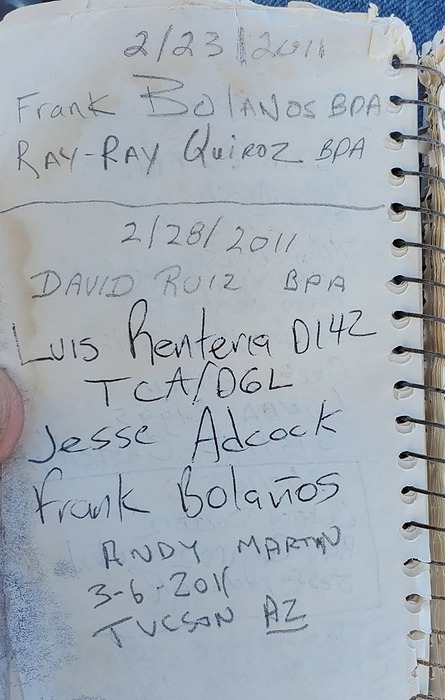 2/23/2011
Frank Bolanos BPA
RAY-RAY Quiroz BPA
2/28/2011
DAVID RUIZ BPA
Luis Renteria D142
TCA/DGL
Jesse Adcock
Frank Bolaños
ANDY MARTIN
3-6-2011
TUCSON AZ